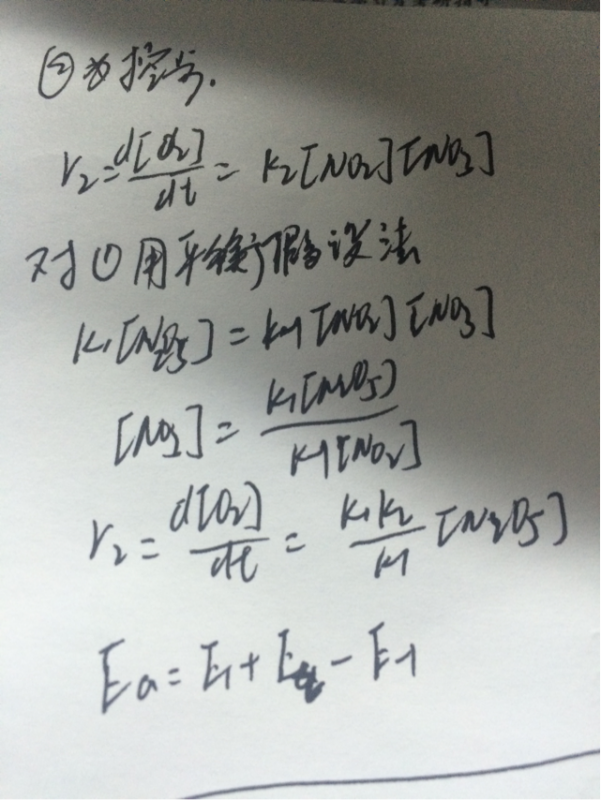 ②为控步.
r₂=d[O₂]/dt = k₂[NO₂][NO₃]
对①用平衡假设法
k₁[N₂O₅] = k₋₁[NO₂][NO₃]
[NO₃] = k₁[N₂O₅]/k₋₁[NO₂]
r₂ = d[O₂]/dt = k₁k₂/k₋₁ [N₂O₅]
Ea = E₁ + E₂ - E₋₁